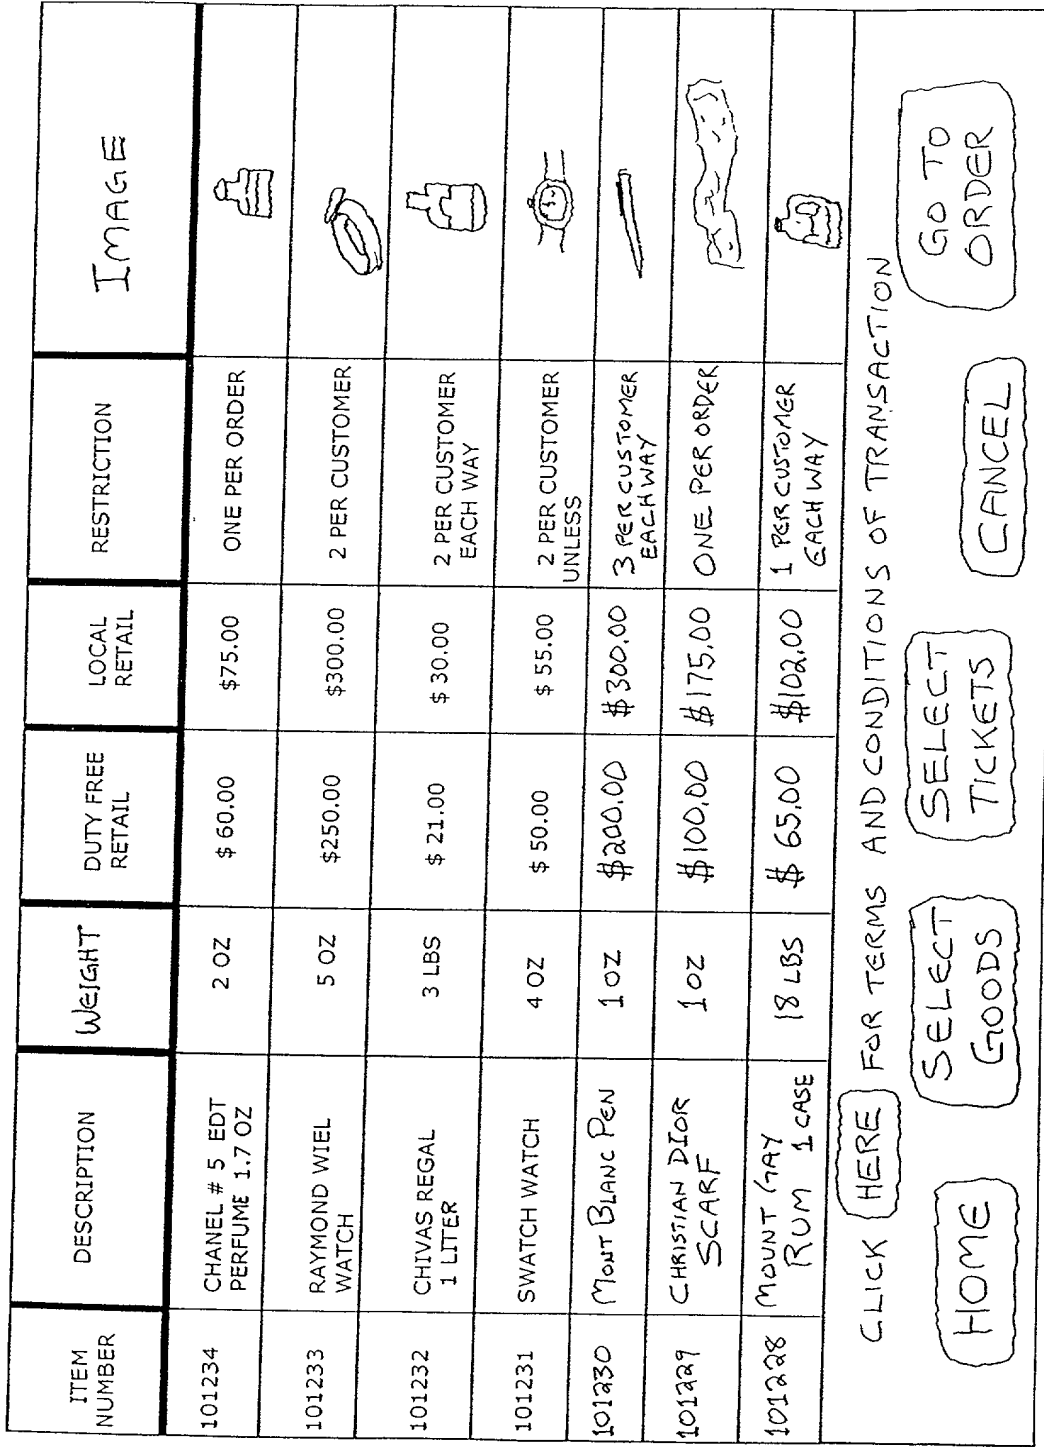 ITEM NUMBER DESCRIPTION WEIGHT DUTY FREE RETAIL LOCAL RETAIL RESTRICTION IMAGE
101234 CHANEL # 5 EDT PERFUME 1.7 OZ 2 OZ $ 60.00 $75.00 ONE PER ORDER
101233 RAYMOND WIEL WATCH 5 OZ $250.00 $300.00 2 PER CUSTOMER
101232 CHIVAS REGAL 1 LITER 3 LBS $ 21.00 $ 30.00 2 PER CUSTOMER EACH WAY
101231 SWATCH WATCH 4 OZ $ 50.00 $ 55.00 2 PER CUSTOMER UNLESS
101230 MONT BLANC PEN 1 OZ $200.00 $300.00 3 PER CUSTOMER EACH WAY
101229 CHRISTIAN DIOR SCARF 1 OZ $100.00 $175.00 ONE PER ORDER
101228 MOUNT GAY RUM 1 CASE 18 LBS $ 65.00 $102.00 1 PER CUSTOMER EACH WAY
CLICK HERE FOR TERMS AND CONDITIONS OF TRANSACTION
HOME
SELECT GOODS
SELECT TICKETS
CANCEL
GO TO ORDER